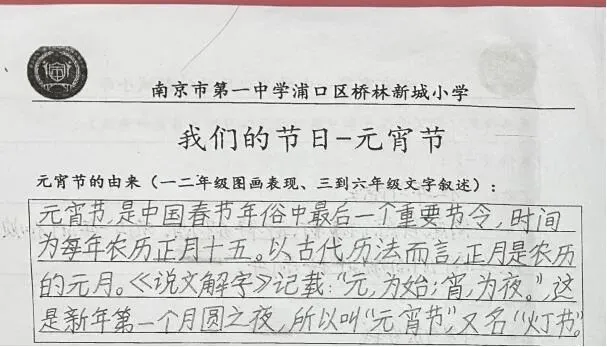 南京市第一中学浦口区桥林新城小学
我们的节日-元宵节
元宵节的由来（一二年级图画表现、三到六年级文字叙述）：
元宵节,是中国春节年俗中最后一个重要节令,时间
为每年农历正月十五。以古代历法而言,正月是农历
的元月。《说文解字》记载:“元,为始;宵,为夜。”,这
是新年第一个月圆之夜,所以叫“元宵节”,又名“灯节”。